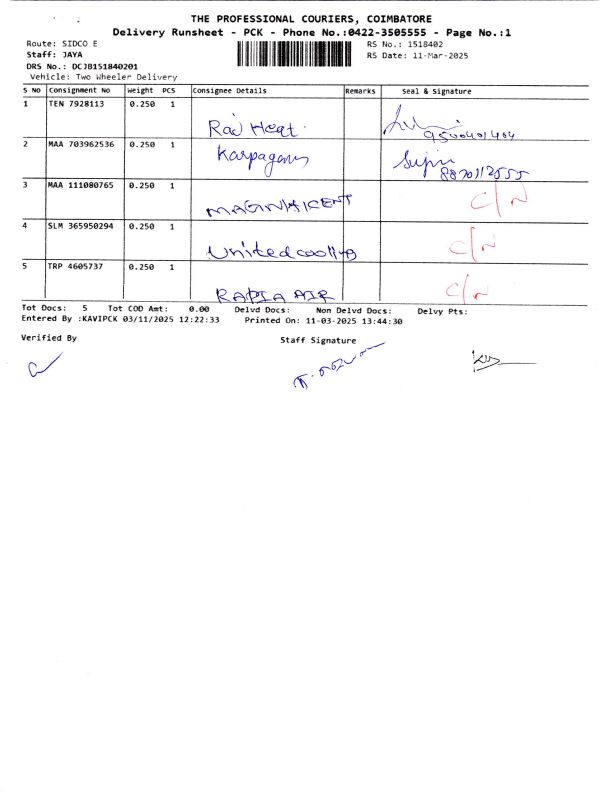 THE PROFESSIONAL COURIERS, COIMBATORE
Delivery Runsheet - PCK - Phone No.:0422-3505555 - Page No.:1
Route: SIDCO E
RS No.: 1518402
Staff: JAYA
RS Date: 11-Mar-2025
DRS No.: DCJB151840201
Vehicle: Two Wheeler Delivery
S No Consignment No Weight PCS Consignee Details Remarks Seal & Signature
1 TEN 7928113 0.250 1
Raj Heat
2 MAA 703962536 0.250 1
Karpagam
3 MAA 111080765 0.250 1 C/N
MAGNIFICENT
4 SLM 365950294 0.250 1 C/N
United cooling
5 TRP 4605737 0.250 1 C/N
AIR
Tot Docs: 5 Tot COD Amt: 0.00 Delvd Docs: Non Delvd Docs: Delvy Pts:
Entered By :KAVIPCK 03/11/2025 12:22:33 Printed On: 11-03-2025 13:44:30
Verified By
Staff Signature